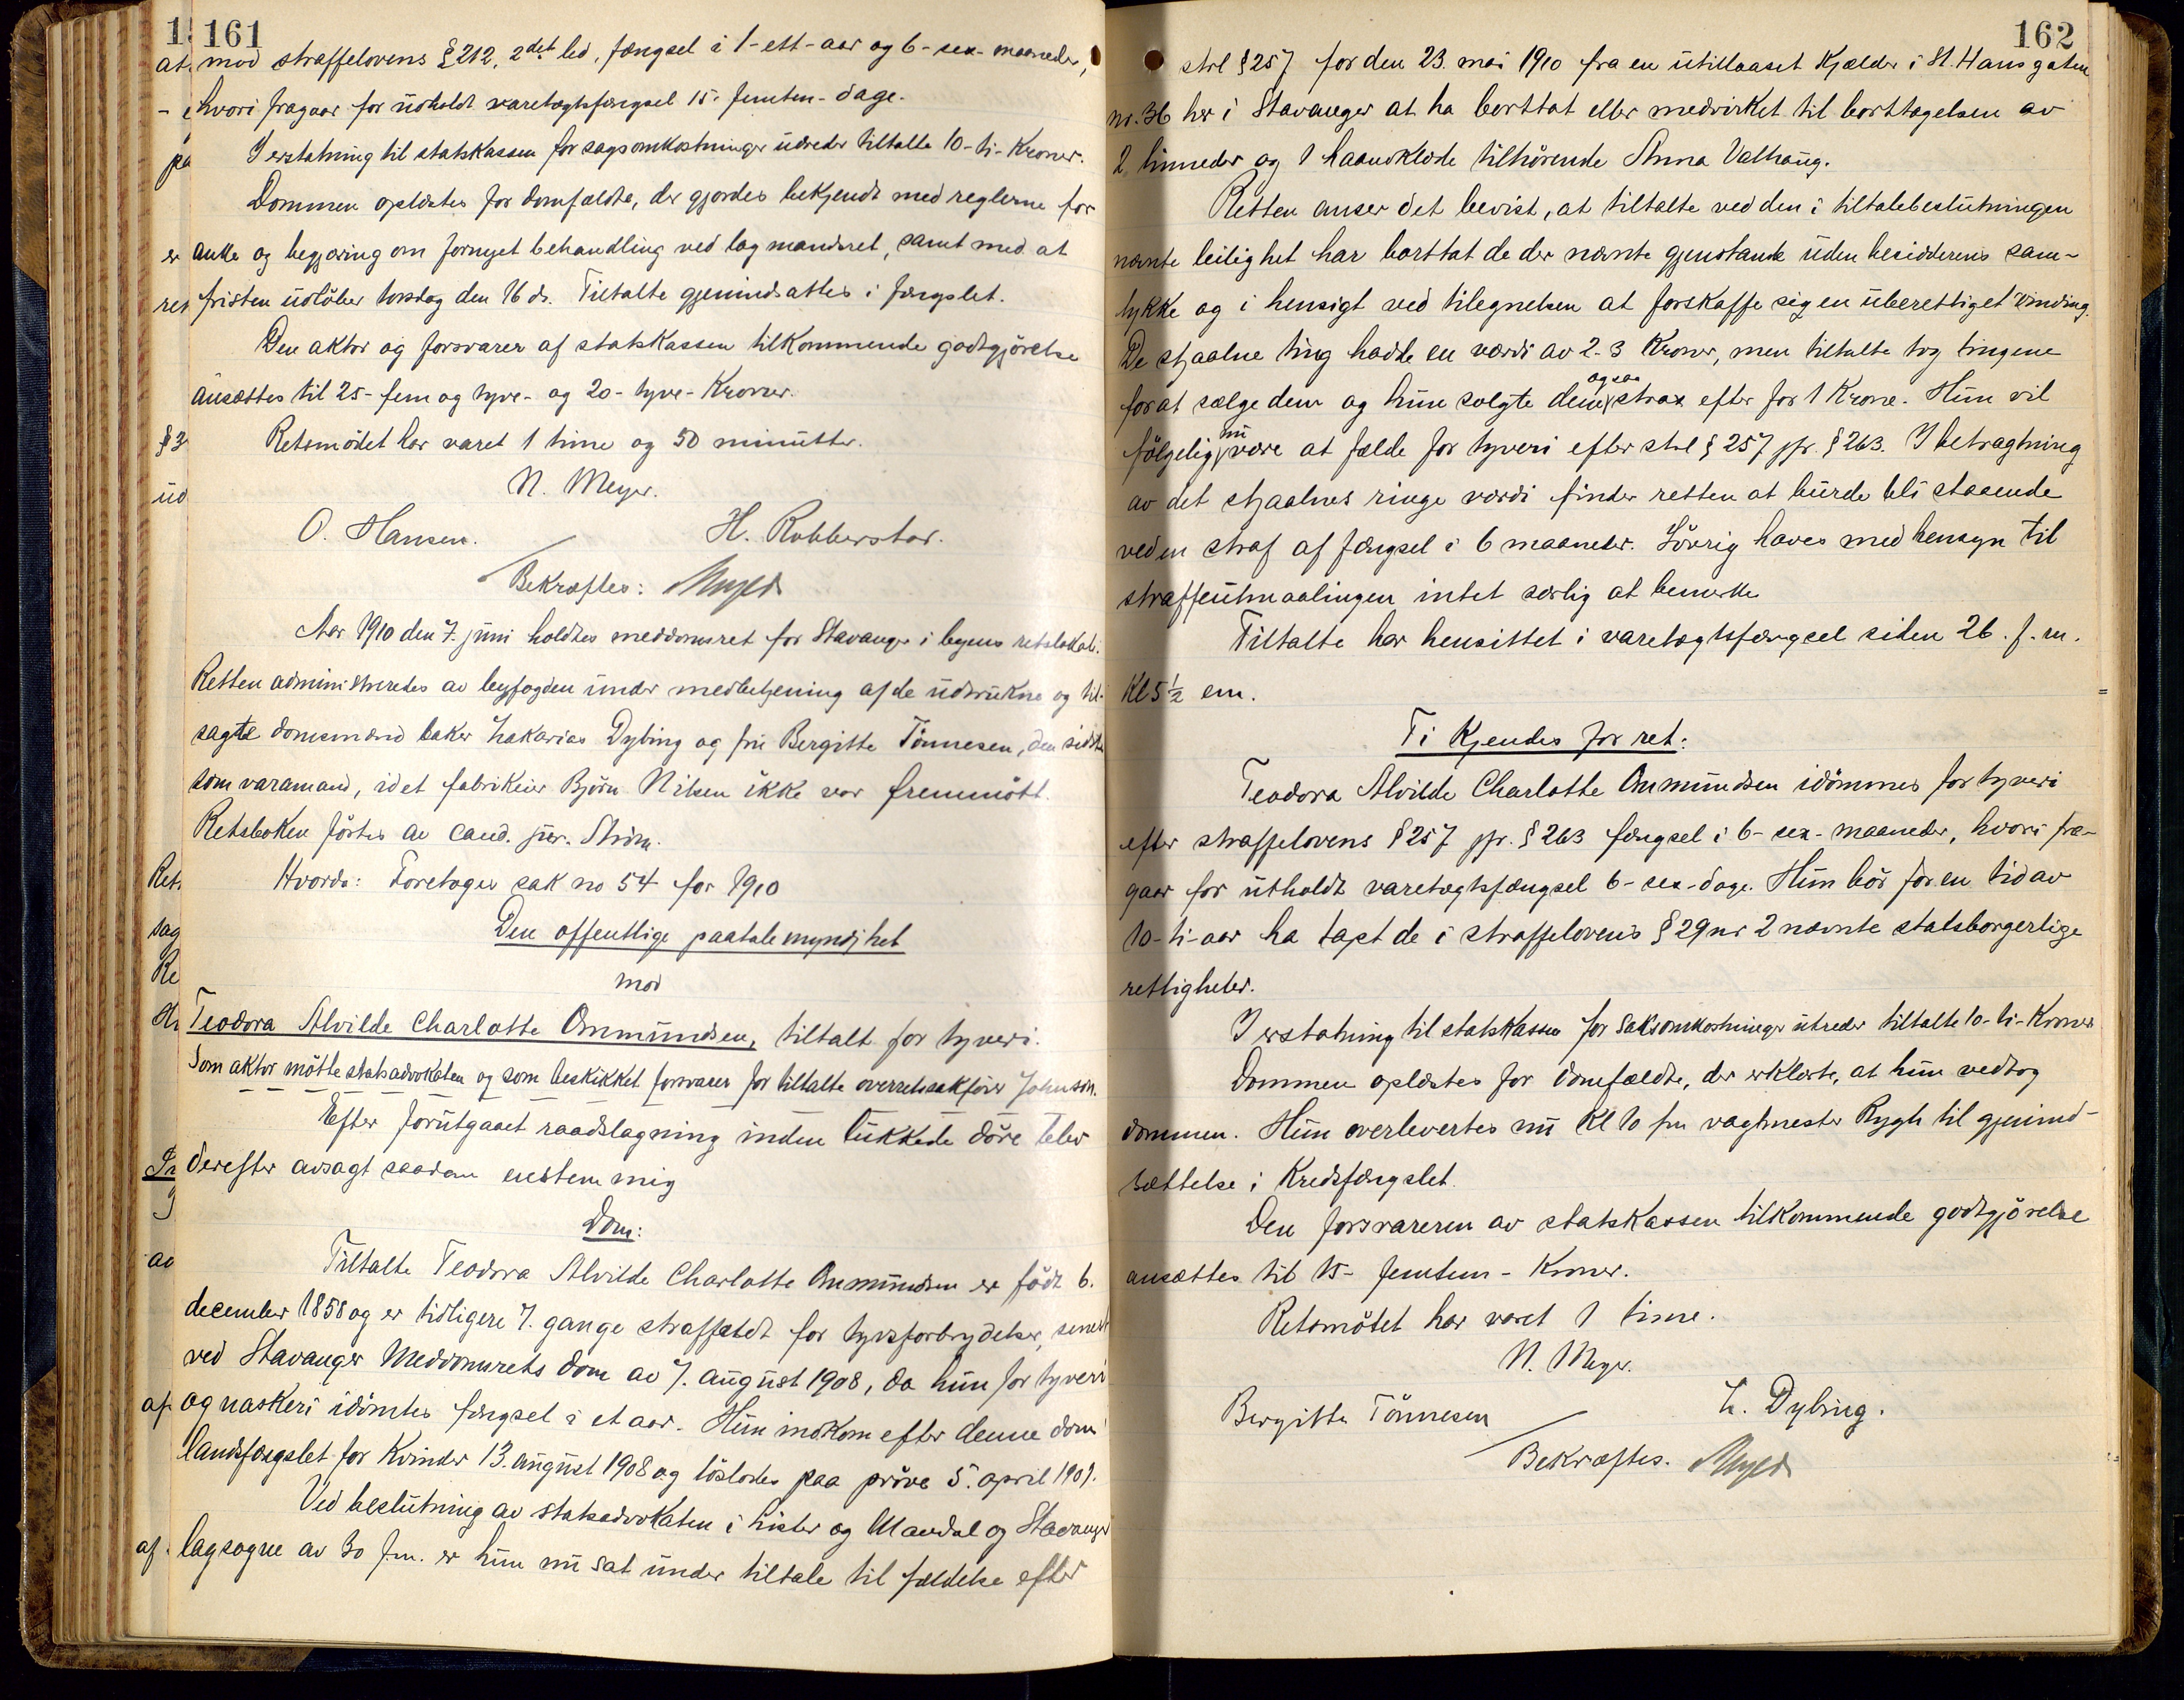 161
mod straffelovens § 212, 2det led, fængsel i 1-ett-aar og 6-sex-maaneder,
hvori fragaar for udholdt varetægtsfængsel 15. femten-dage.
I erstatning til statskassen for sagsomkostninger udreder tiltalte 10-ti-Kroner.
Dommen oplæstes for domfældte, der gjordes bekjendt med reglerne for
anke og begjæring om fornyet behandling ved lagmandsret, samt med at
fristen udløber torsdag den 16 ds. Tiltalte gjenindsattes i fængslet.
Den aktor og forsvarer af statskassen tilkommende godtgjörelse
ansættes til 25-fem og tyve- og 20-tyve-Kroner.
Retsmödet har varet 1 time og 50 minutter.
N. Meyer.
O. Hansen. H. Robberstad.
Bekræftes: Meyer
Aar 1910 den 7. juni holdtes meddomsret for Stavanger i byens retslokale.
Retten administreredes av byfogden under medbetjening af de udtrukne og til-
sagte domsmænd baker Zakarias Dybing og fru Bergitte Tönnesen, den sidste
som varamand, idet fabrikeier Björn Nilsen ikke var fremmött.
Retsboken førtes av cand. jur. Ström.
Hvorda: Foretoges sak no 54 for 1910
Den offentlige paatalemyndihet
mod
Teodora Alvilde Charlotte Onmundsen, tiltalt for tyveri.
Som aktor mötte statsadvokaten og som beskikket forsvarer for tiltalte overretssakförer Johnson.
Efter forutgaaet raadslagning inden lukkede döre blev
derefter avsagt saadan enstemmig
Dom:
Tiltalte Teodora Alvilde Charlotte Onmundsen er födt 6.
december 1858 og er tidligere 7. gange straffældt for tyvsforbrydelser, senest
ved Stavanger Meddomsrets dom av 7. august 1908, da hun for tyveri
og naskeri idömtes fængsel i et aar. Hun indkom efter denne dom i
landsfængslet for Kvinder 13. august 1908 og löslodes paa pröve 5. april 1909.
Ved beslutning av statsadvokaten i Lister og Mandal og Stavanger
lagsogne av 30 f.m. er hun nu sat under tiltale til fældelse efter
162
strl § 257 for den 23. mai 1910 fra en utillaaset Kjælder i St. Hans gaten
nr. 36 her i Stavanger at ha borttat eller medvirket til borttagelsen av
2 tinneder og 1 haandklæde tilhörende Anna Valhaug.
Retten anser det bevist, at tiltalte ved den i tiltalebeslutningen
nævnte leilighet har borttat de der nævnte gjenstande uden besidderens sam-
tykke og i hensigt ved tilegnelsen at forskaffe sig en uberettiget vinding.
De stjaalne ting hadde en værdi av 2-3 Kroner, men tiltalte tog tingene
for at sælge dem og hun solgte dem ogsaa strax efter for 1 Krone. Hun vil
fölgelig nu være at fælde for tyveri efter strl § 257 jfr. § 263. I betragtning
av det stjaalnes ringe værdi finder retten at burde bli staaende
ved en straf af fængsel i 6 maaneder. Iövrig haves med hensyn til
straffeutmaalingen intet særlig at bemerke
Tiltalte har hensittet i varetægtsfængsel siden 26. f. m.
Kl 5 1/2 em.
Ti Kjendes for ret:
Teodora Alvilde Charlotte Onmundsen idömmes for tyveri
efter straffelovens § 257 jfr. § 263 fængsel i 6-sex-maaneder, hvori fra-
gaar for utholdt varetægtsfængsel 6-sex-dage. Hun bör for en tid av
10-ti-aar ha tapt de i straffelovens § 29 nr 2 nævnte statsborgerlige
rettigheter.
I erstatning til statskassen for saksomkostninger utreder tiltalte 10-ti-Kroner
Dommen oplæstes for domfældte, der erklærte, at hun vedtog
dommen. Hun overlevertes nu Kl 10 fm vagtmester Rygh til gjenind-
sættelse i Kredsfængslet.
Den forsvareren av statskassen tilkommende godtgjörelse
ansættes til 15- femten - Kroner.
Retsmötet har varet 1 time.
N. Meyer.
Bergitte Tönnesen Z. Dybing.
Bekræftes. Meyer